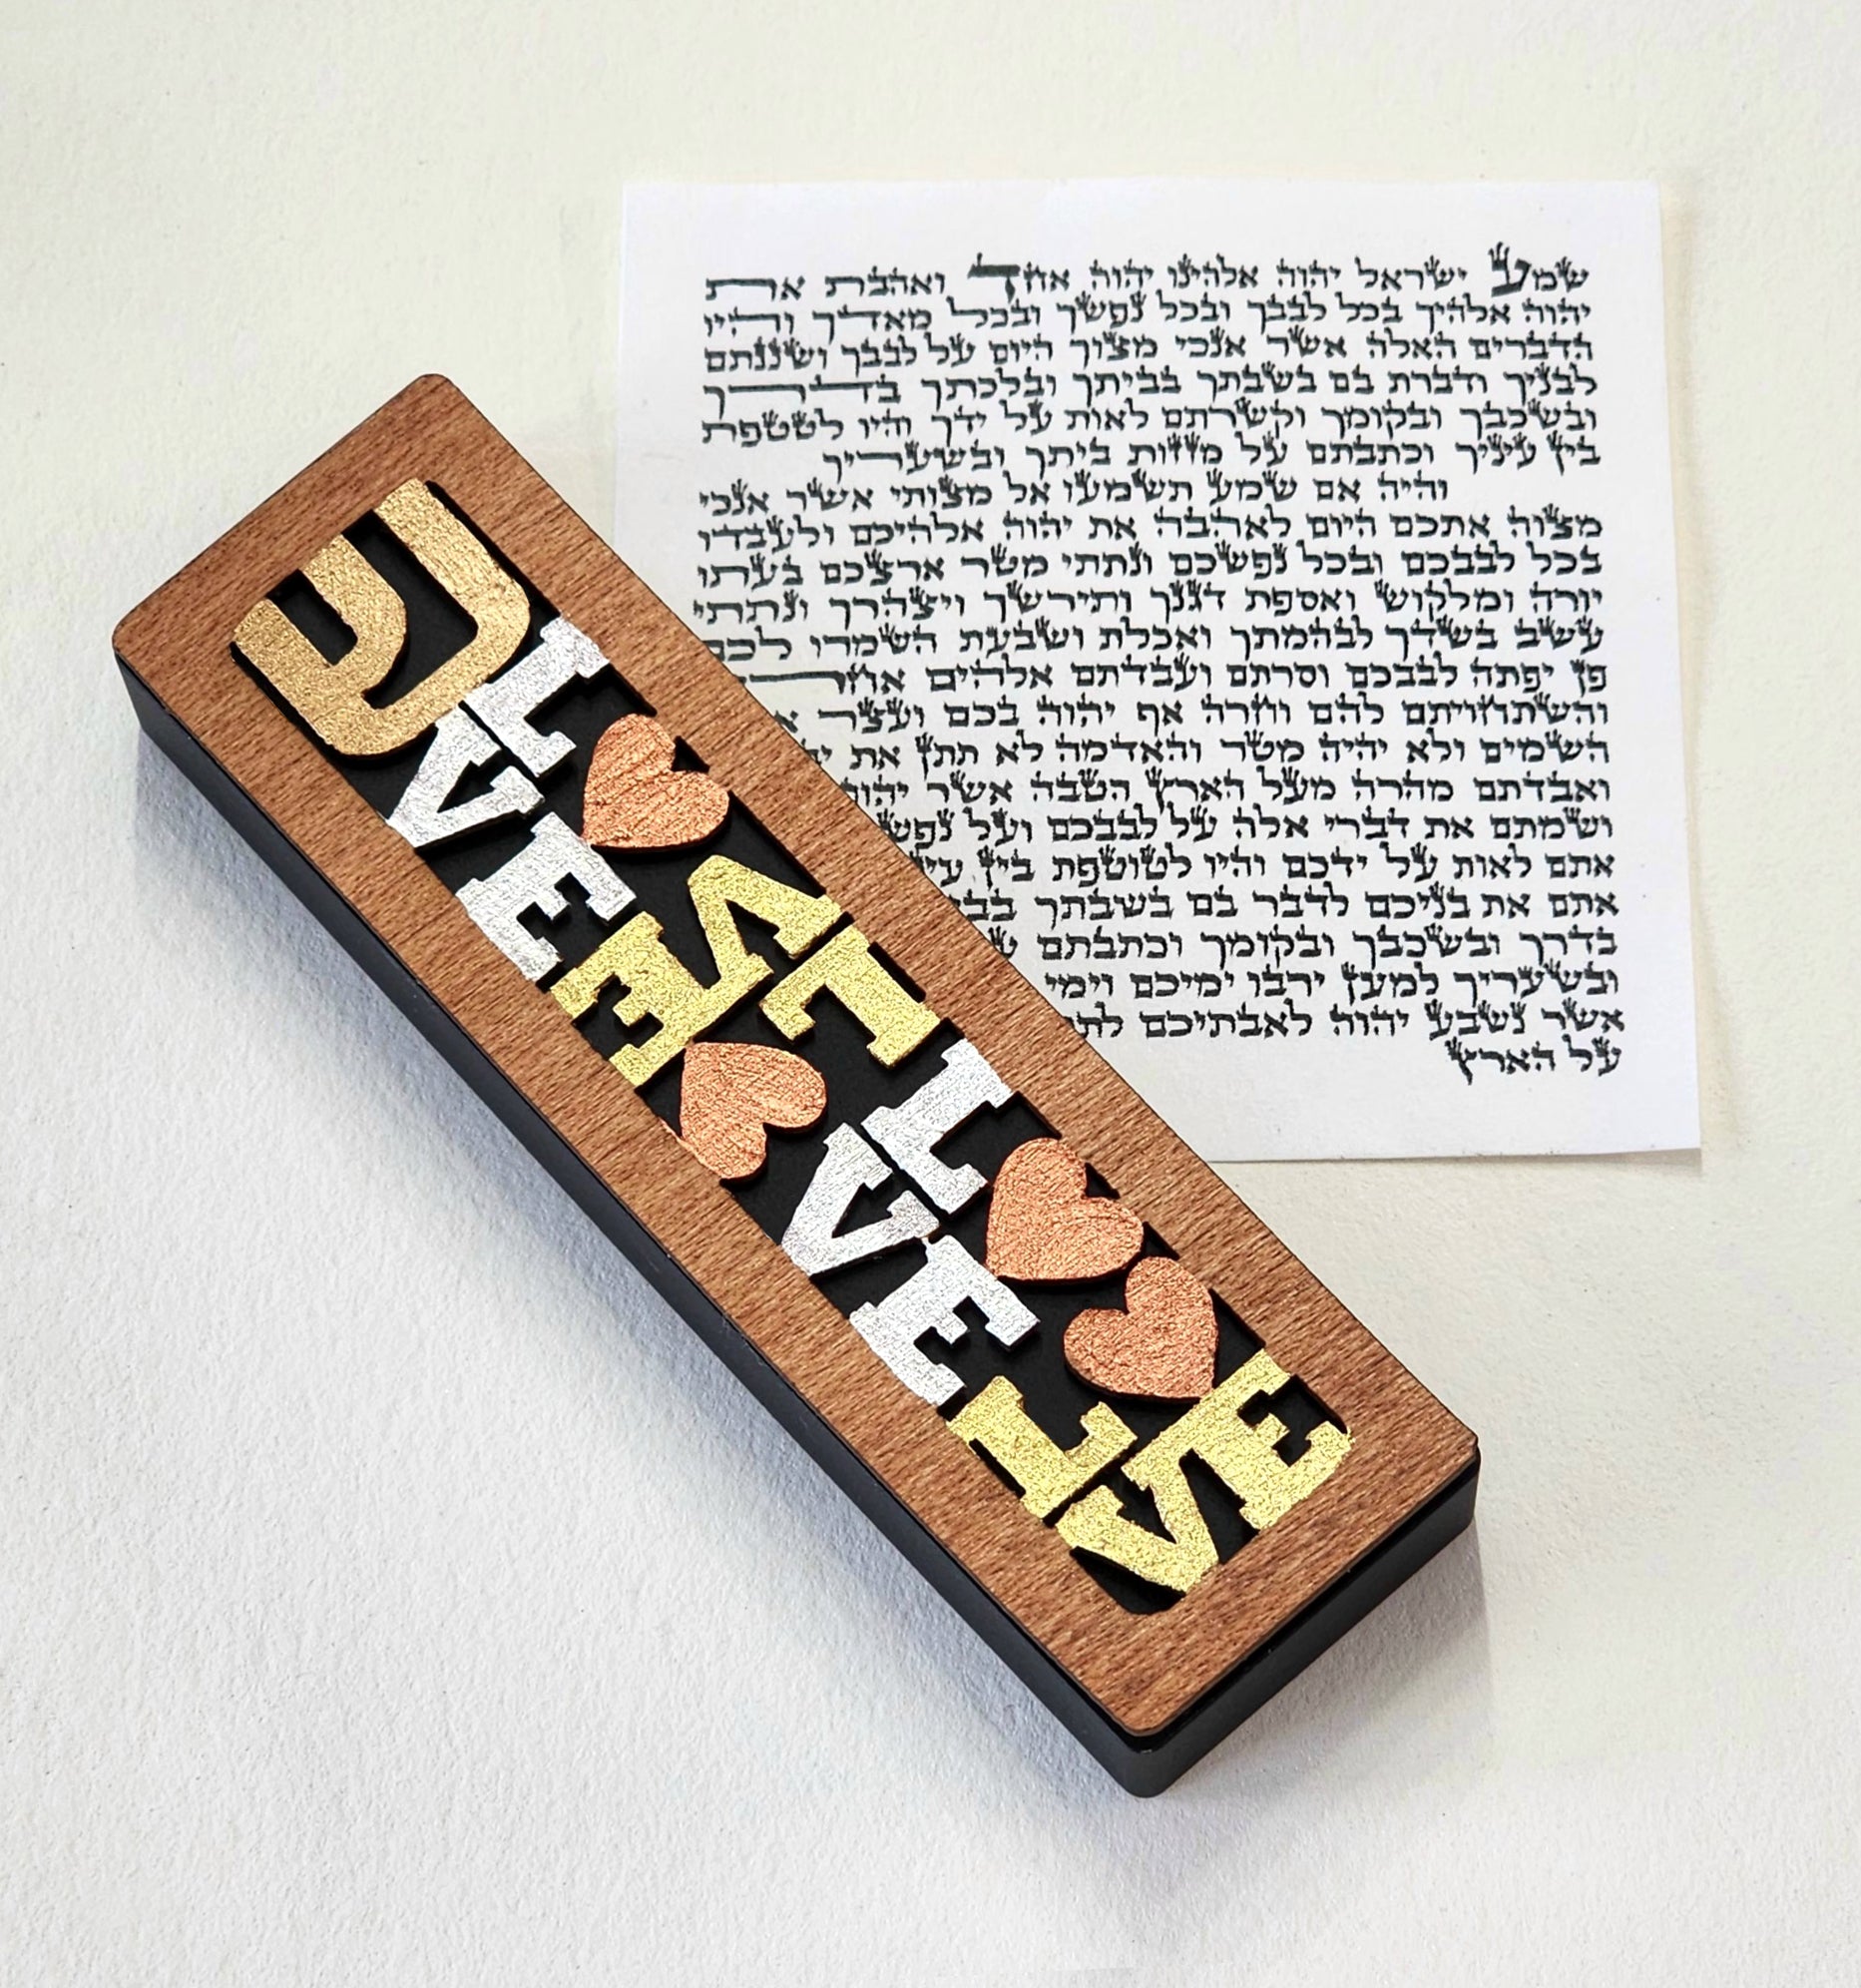 שמע ישראל יהוה אלהינו יהוה אחד ואהבת את
יהוה אלהיך בכל לבבך ובכל נפשך ובכל מאדך והיו
הדברים האלה אשר אנכי מצוך היום על לבבך ושננתם
לבניך ודברת בם בשבתך בביתך ובלכתך בדרך
ובשכבך ובקומך וקשרתם לאות על ידך והיו לטטפת
בין עיניך וכתבתם על מזזות ביתך ובשעריך
והיה אם שמע תשמעו אל מצותי אשר אנכי
מצוה אתכם היום לאהבה את יהוה אלהיכם ולעבדו
בכל לבבכם ובכל נפשכם ונתתי מטר ארצכם בעתו
יורה ומלקוש ואספת דגנך ותירשך ויצהרך ונתתי
עשב בשדך לבהמתך ואכלת ושבעת השמרו לכם
פן יפתה לבבכם וסרתם ועבדתם אלהים
והשתחויתם להם וחרה אף יהוה בכם ועצר
השמים ולא יהיה מטר והאדמה לא תתן את
ואבדתם מהרה מעל הארץ הטבה אשר יהוה
ושמתם את דברי אלה על לבבכם ועל
אתם לאות על ידכם והיו לטוטפת בין
אתם את בניכם לדבר בם בשבתך
בדרך ובשכבך ובקומך וכתבתם
ובשעריך למען ירבו ימיכם וימי
אשר נשבע יהוה לאבתיכם
על הארץ
ש
L♥VE
L♥VE
L♥VE
L♥VE